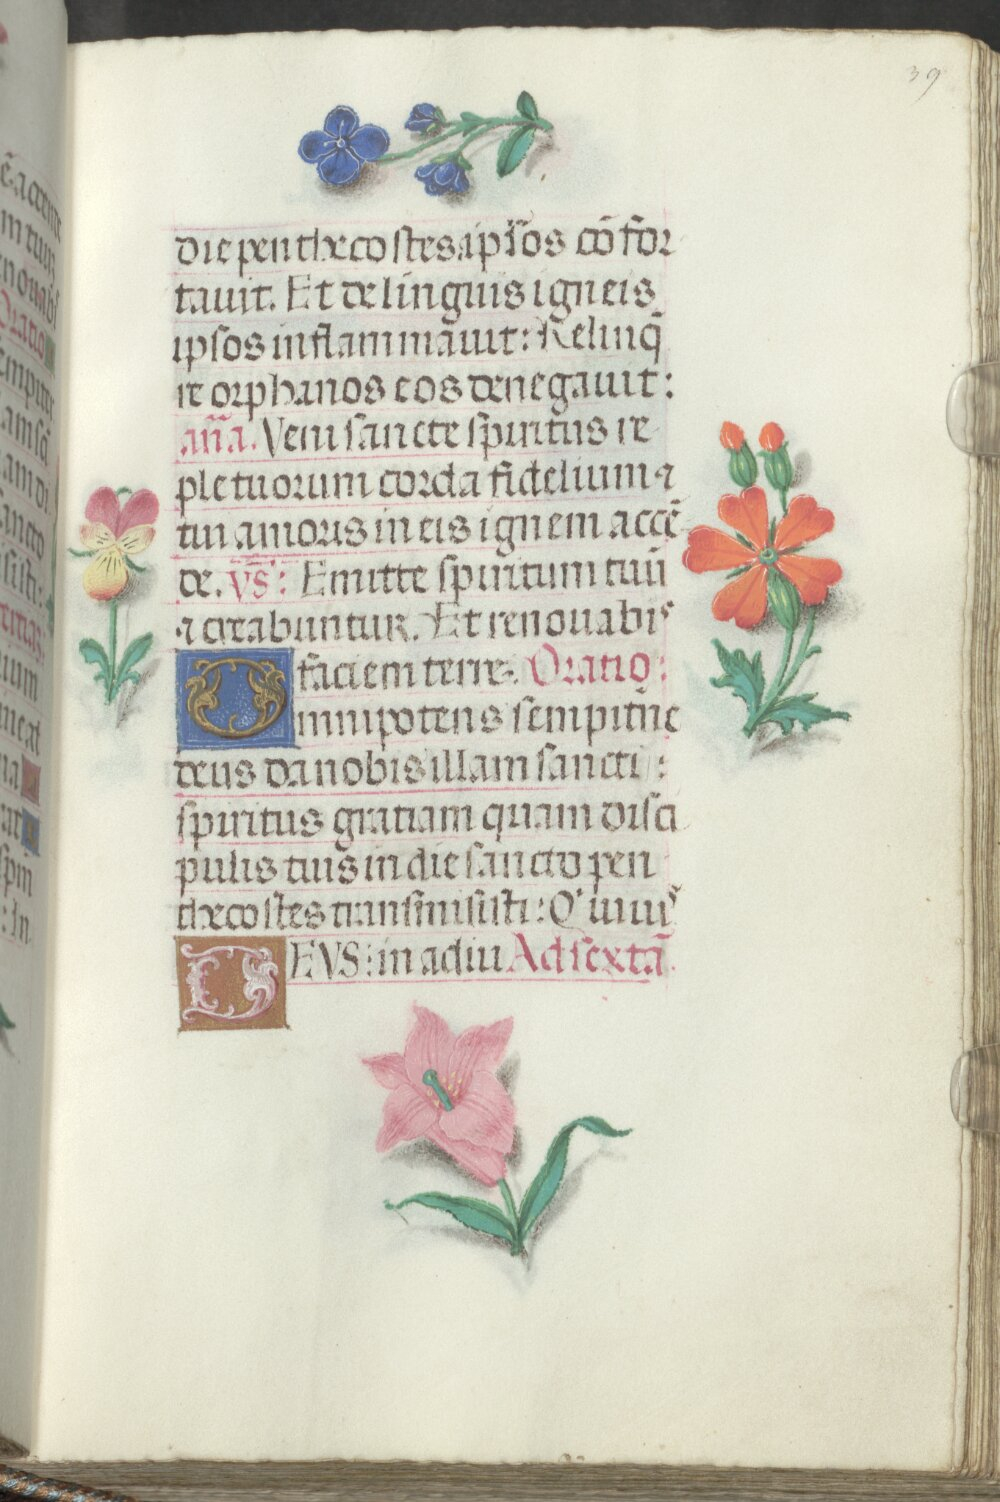 39
die penthecostes ap̄tos cōfor
tavit. Et de linguis igneis
ipsos inflammāvit: Relinq̄
re orphanos eos denegavit:
an̄a. Veni sancte spiritus re
ple tuorum corda fidelium ⁊
tui amoris in eis ignem accē
de. vs̄: Emitte spiritum tuū
⁊ creabuntur. Et renovabis
faciem terre. Oratio:
Omnipotens sempitne
deus da nobis illam sancti:
spiritus gratiam quam disci
pulis tuis in die sancto pen
thecostes transmisisti: Q' vivis
DEVS: in adiu Ad sextā.